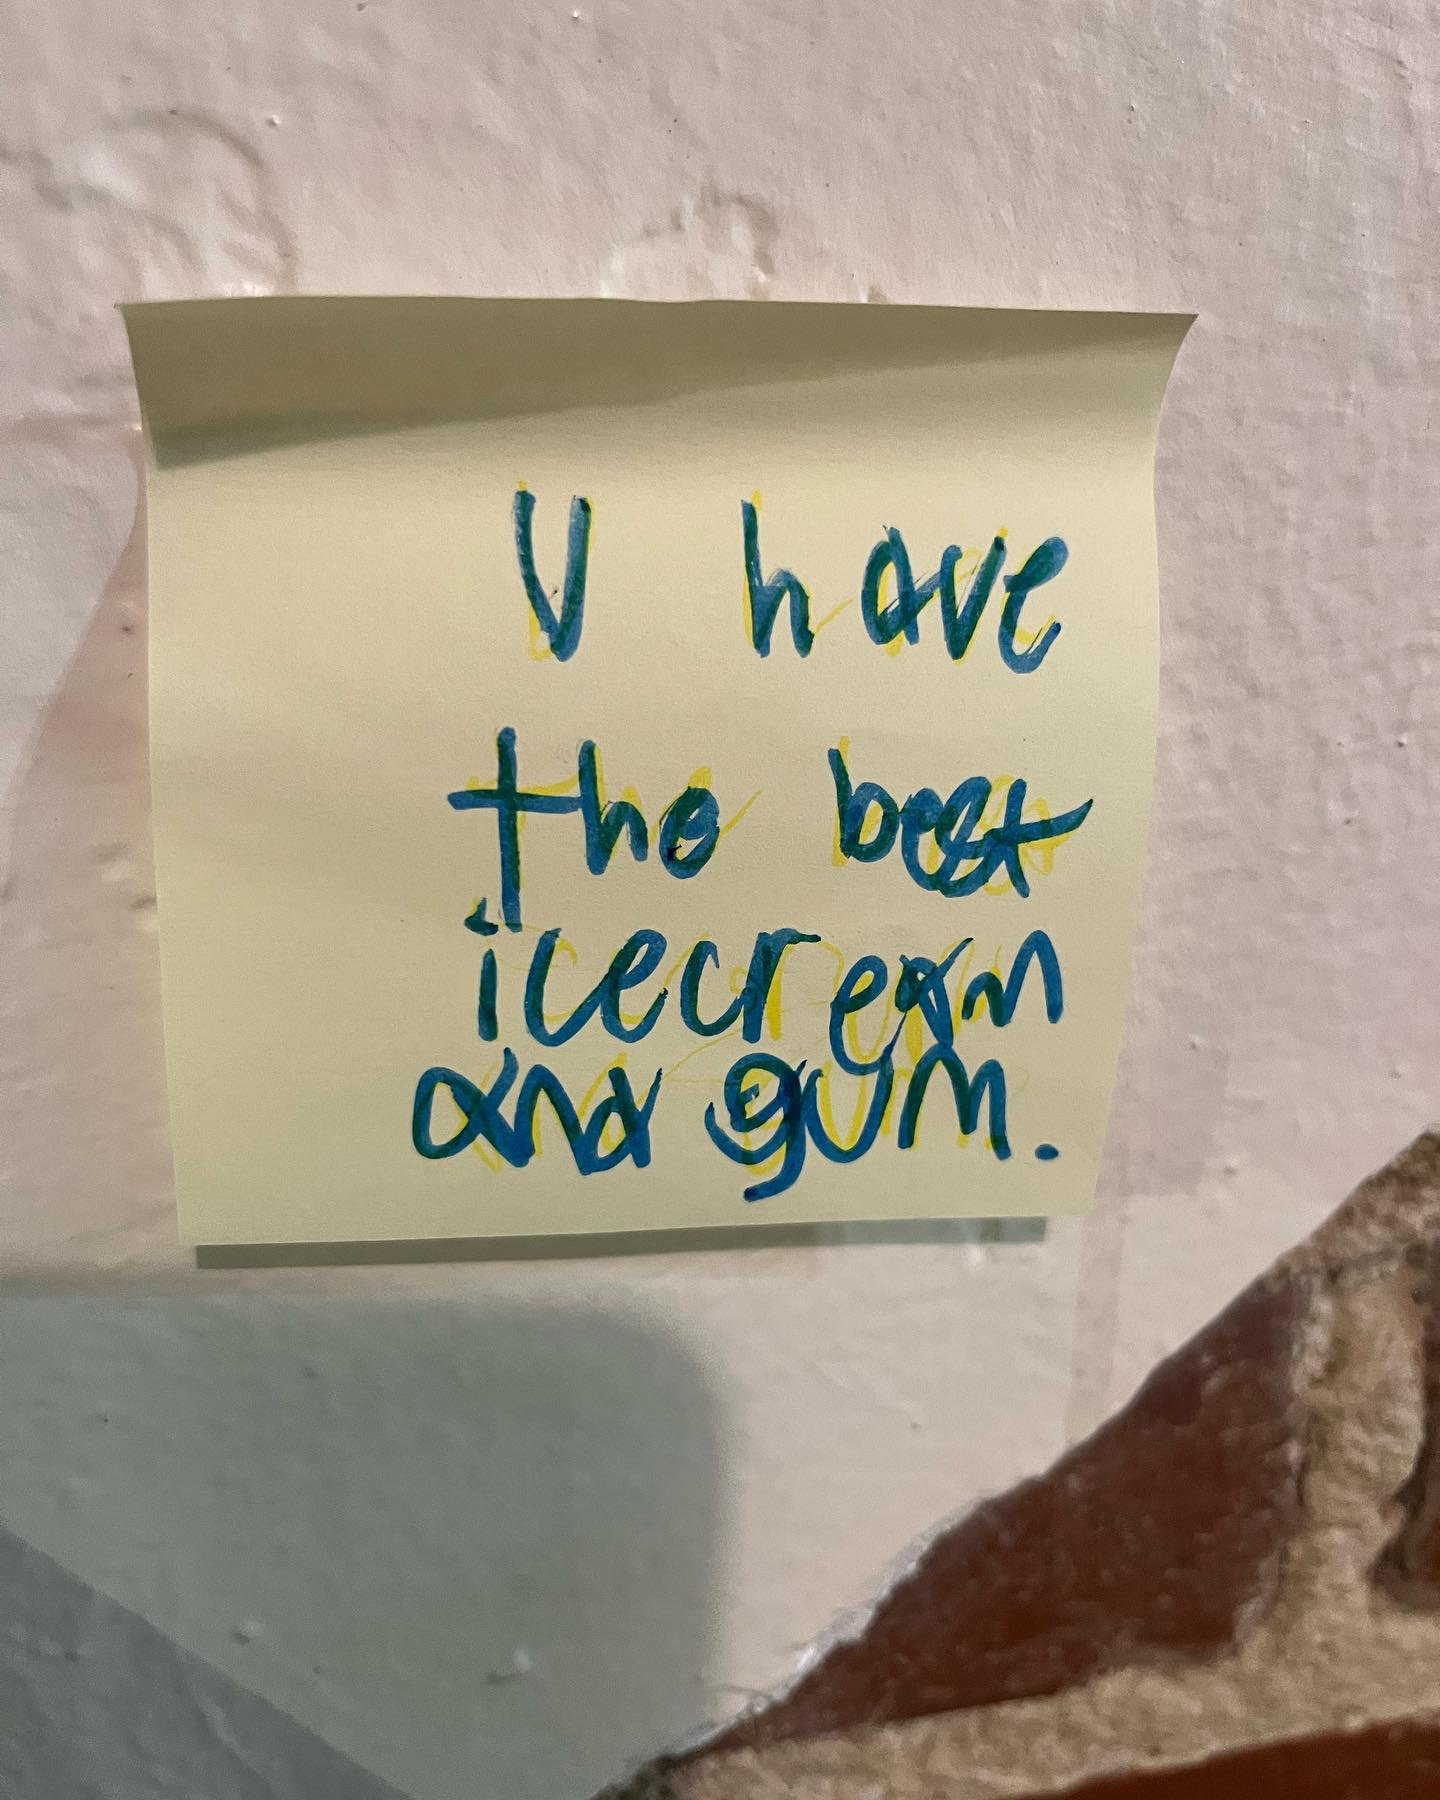 U have
the best
icecream
and gum.